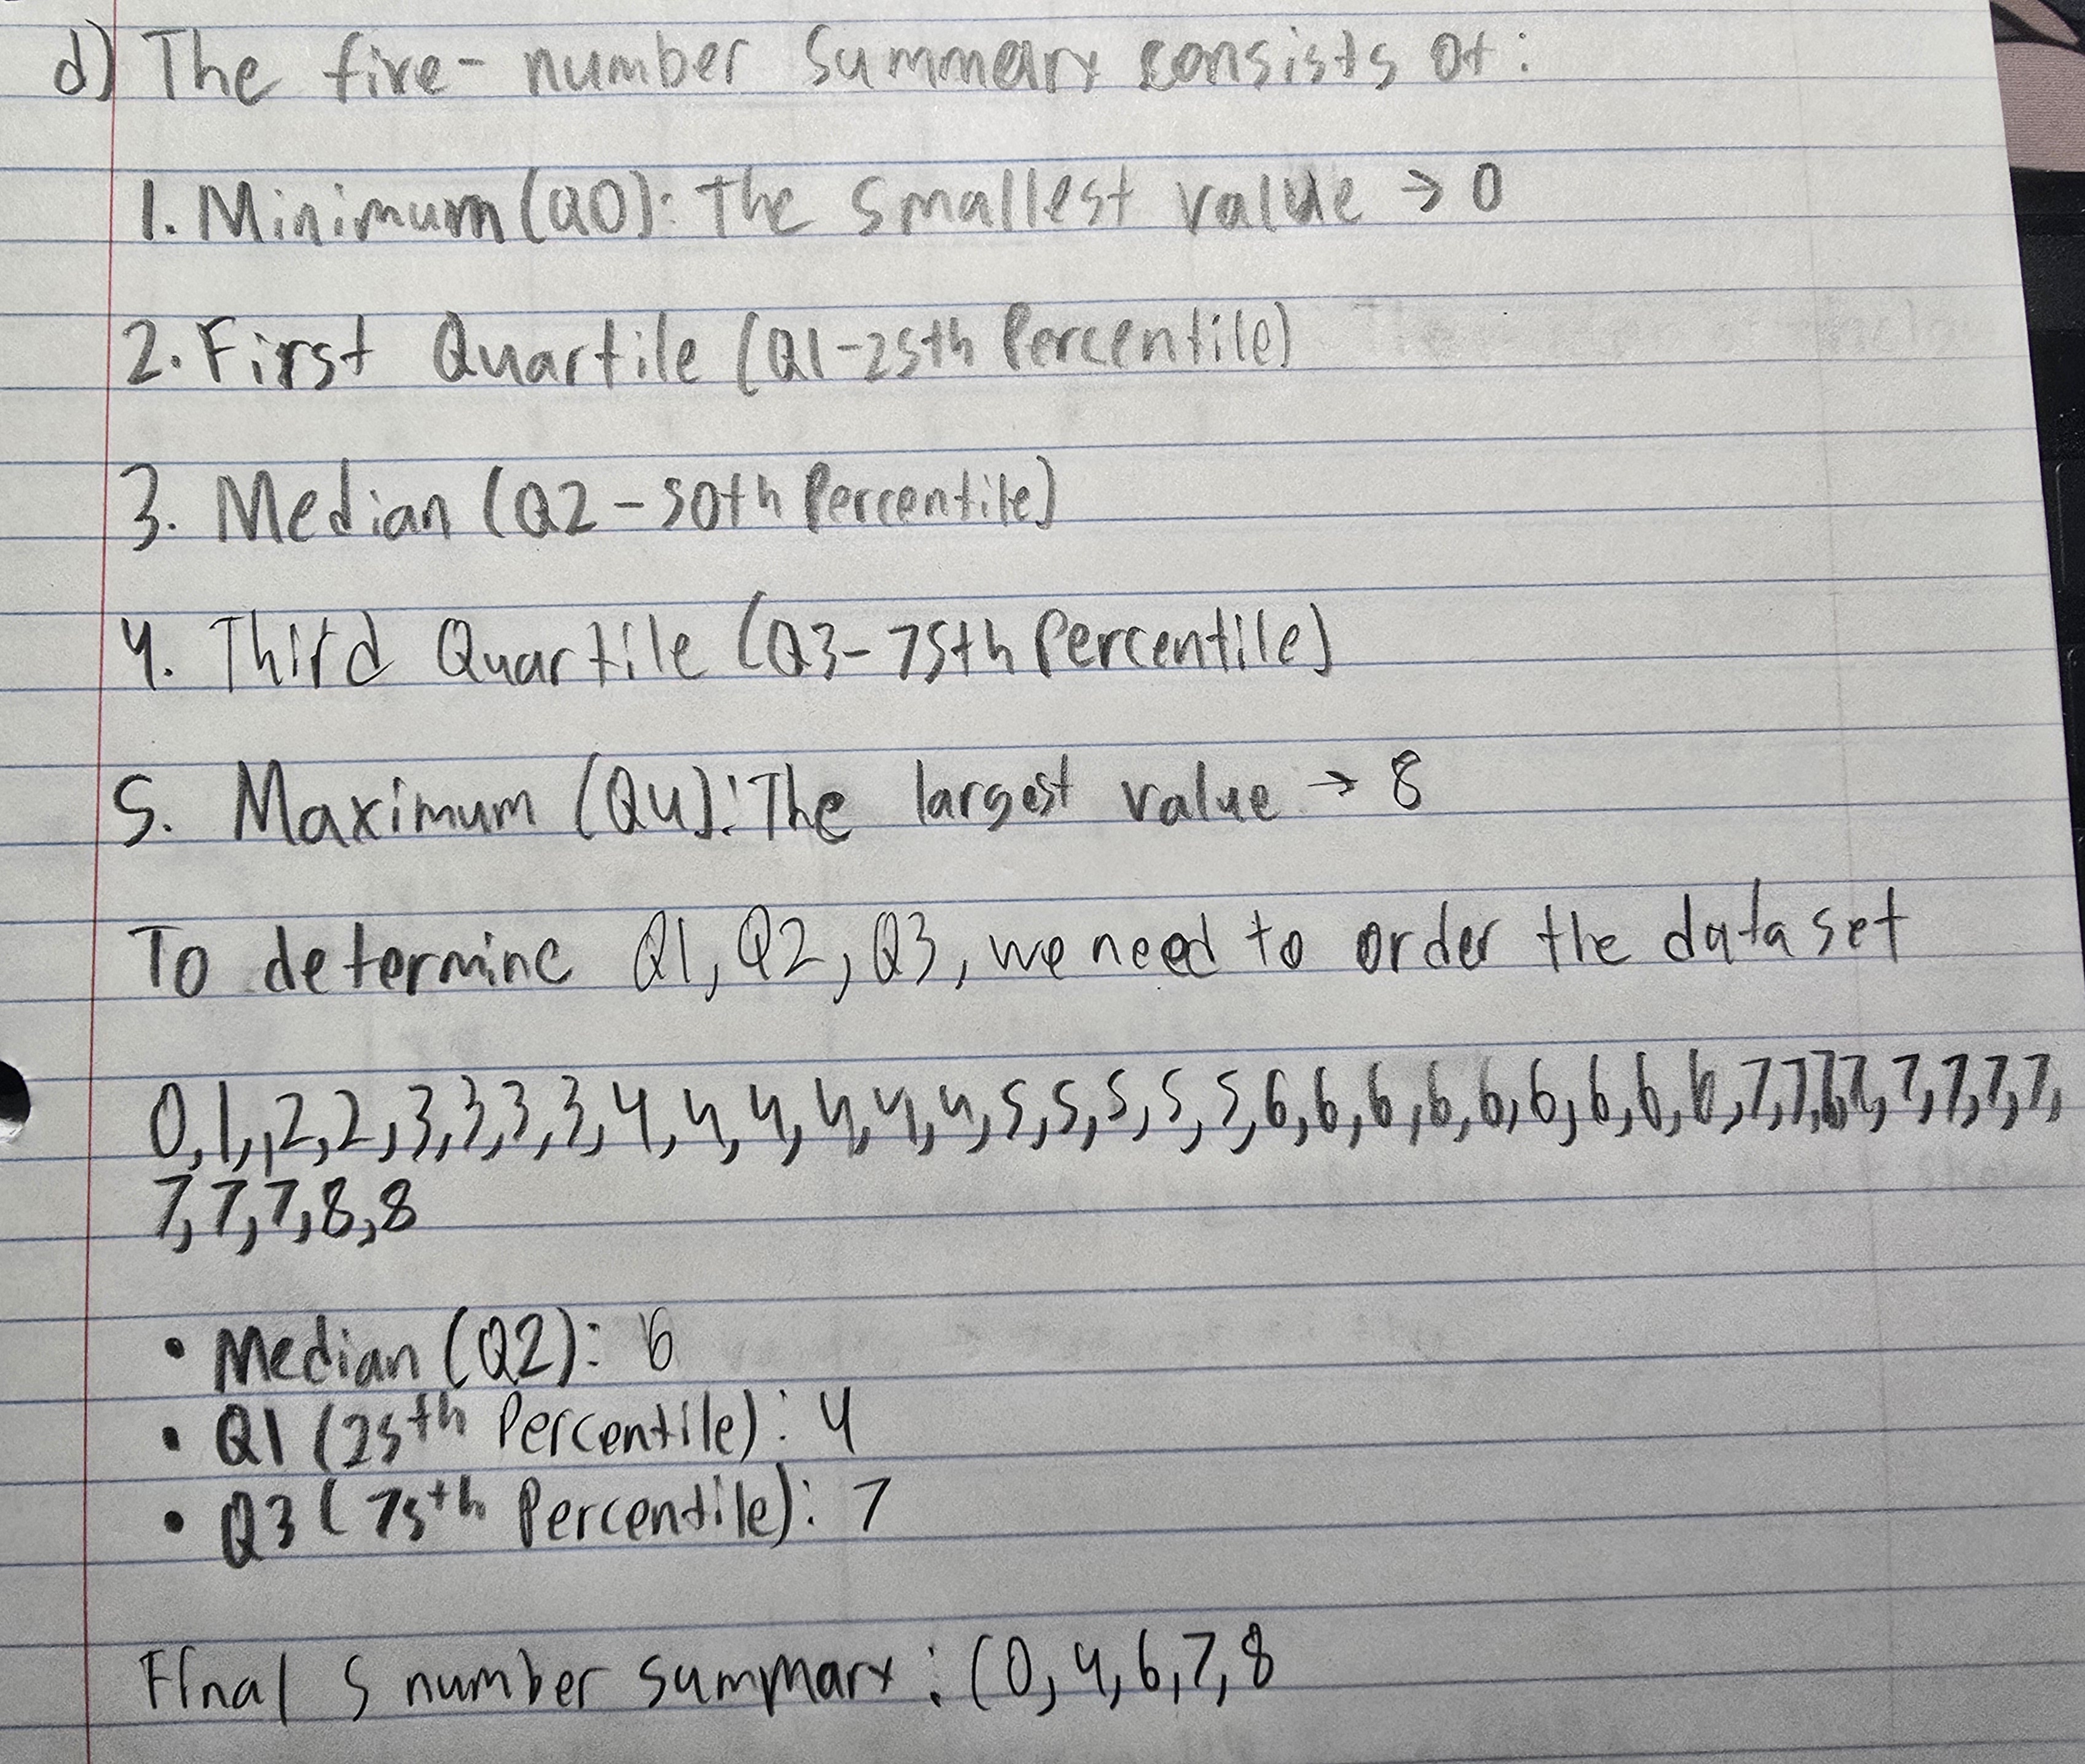 d) The five-number Summary consists of:
1. Minimum (Q0): The smallest value → 0
2. First Quartile (Q1-25th Percentile)
3. Median (Q2-50th Percentile)
4. Third Quartile (Q3-75th Percentile)
5. Maximum (Q4): The largest value → 8
To determine Q1, Q2, Q3, we need to order the dataset
0,1,,2,2,3,3,3,3,4,4,4,4,4,4,5,5,5,5,5,6,6,6,6,6,6,6,6,6,7,7,7,7,7,7,7,
7,7,7,8,8
• Median (Q2): 6
• Q1 (25th Percentile): 4
• Q3 (75th Percentile): 7
Final 5 number summary: (0,4,6,7,8